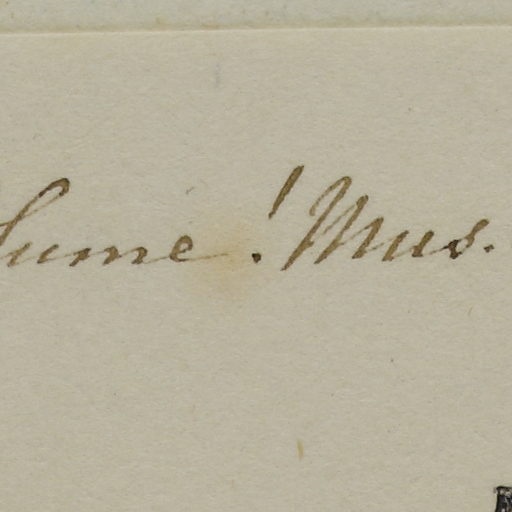 Sume! Mus.